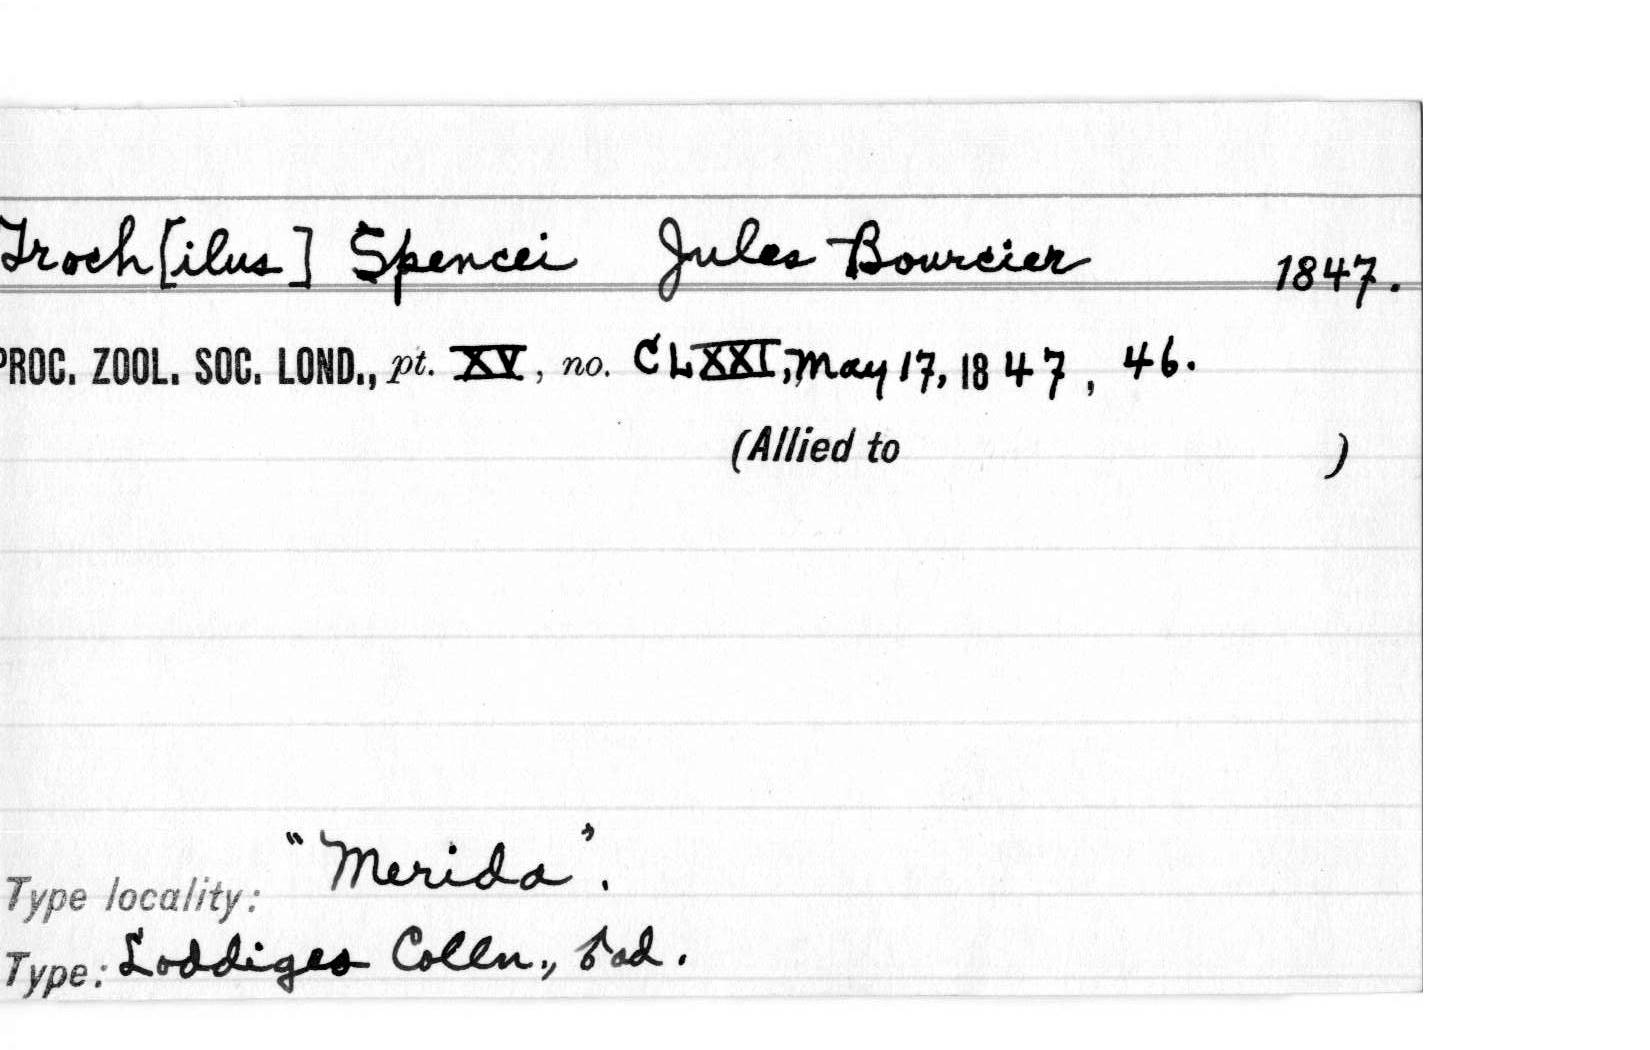 Troch[ilus] Spencei Jules Bourcier 1847.
PROC. ZOOL. SOC. LOND., pt. XV, no. CLXXI, May 17, 1847, 46.
(Allied to )
Type locality: "Merida".
Type: Loddiges Colln., ♂ad.